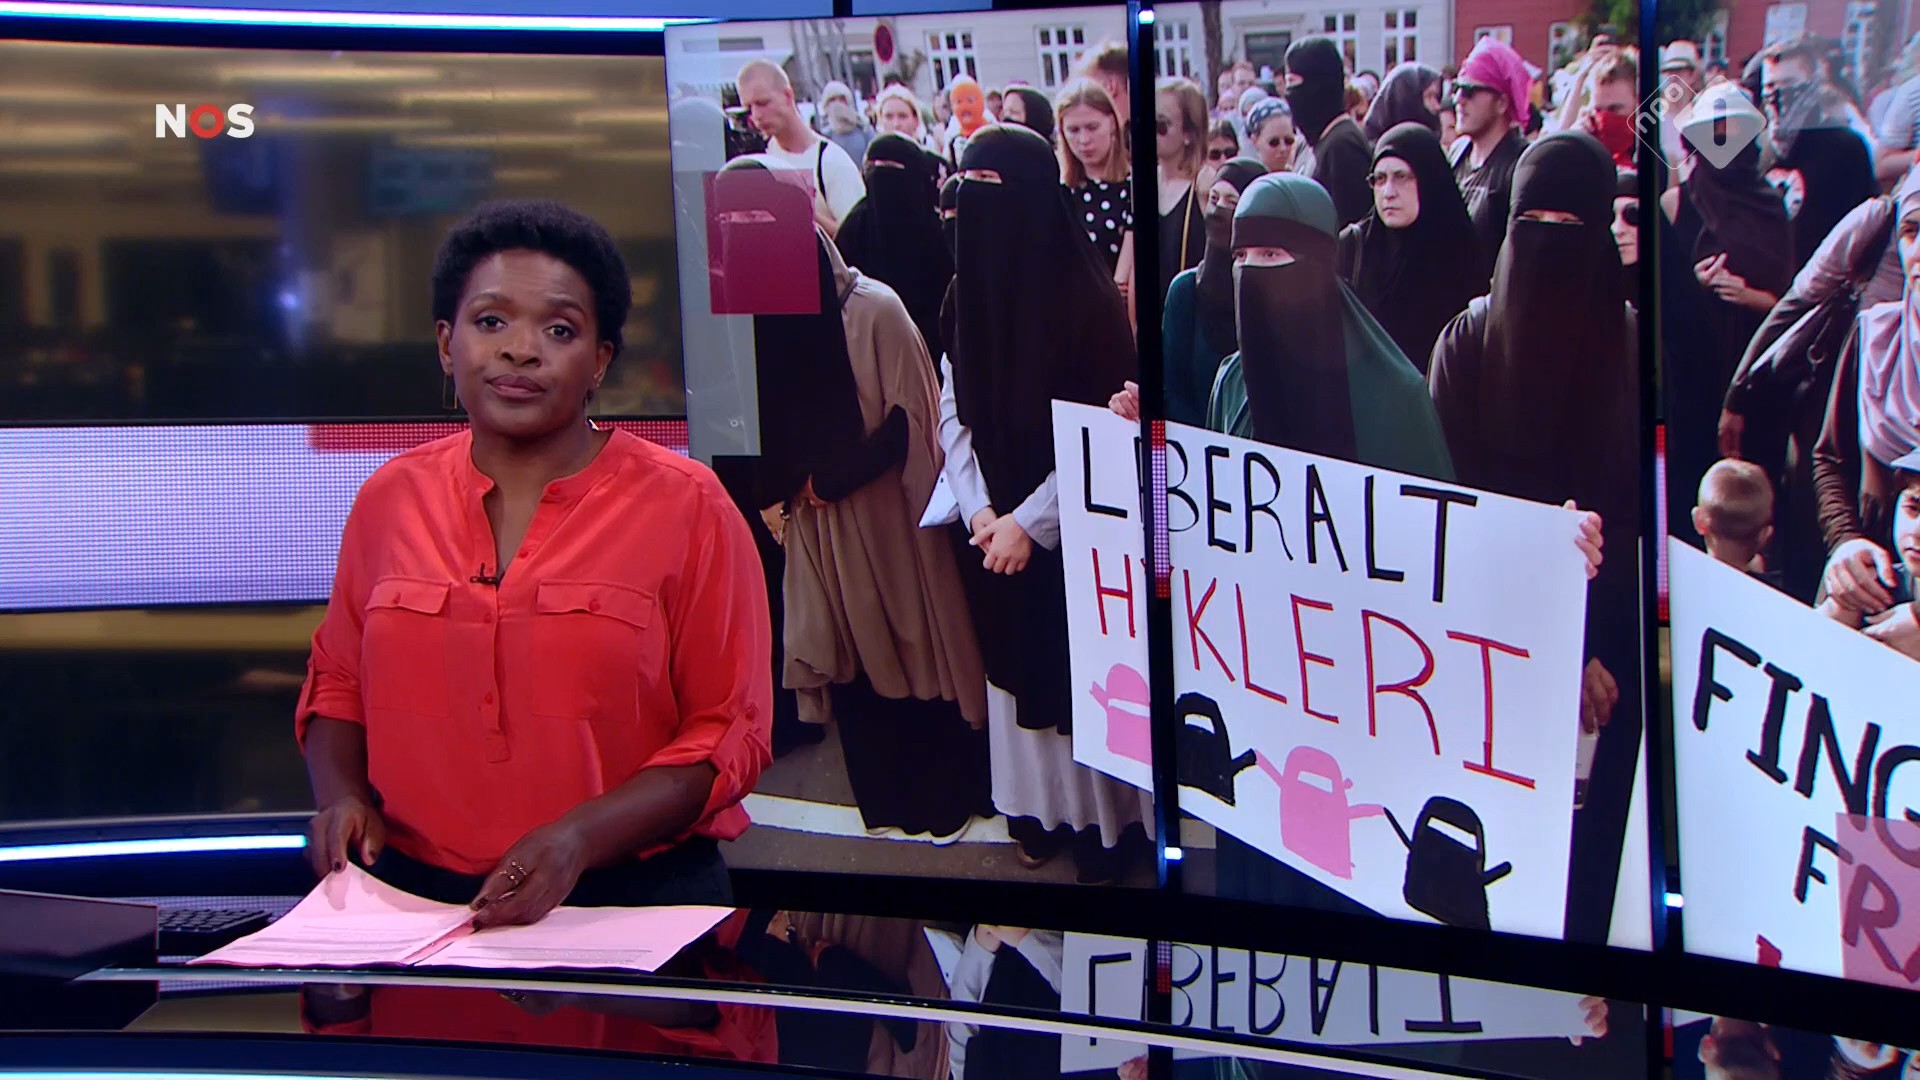 NOS
npo 1
LIBERALT
HYKLERI
FING
FRA